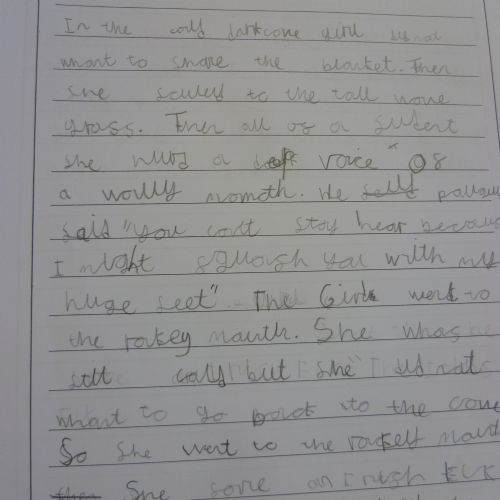 In the coly darkcone girl usnat
whant to share the blanket. Then
she scaled to the tall
grass. Then all os a sudent
she a voice" os
a woully momoth. He
said "you cont stay hear becaus
I might sguosh you with my
huge seet". The Girl went to
the rockey mauth. She whas
still coly but she usnat
whant to go to the cove
So she went to the rockey
She an